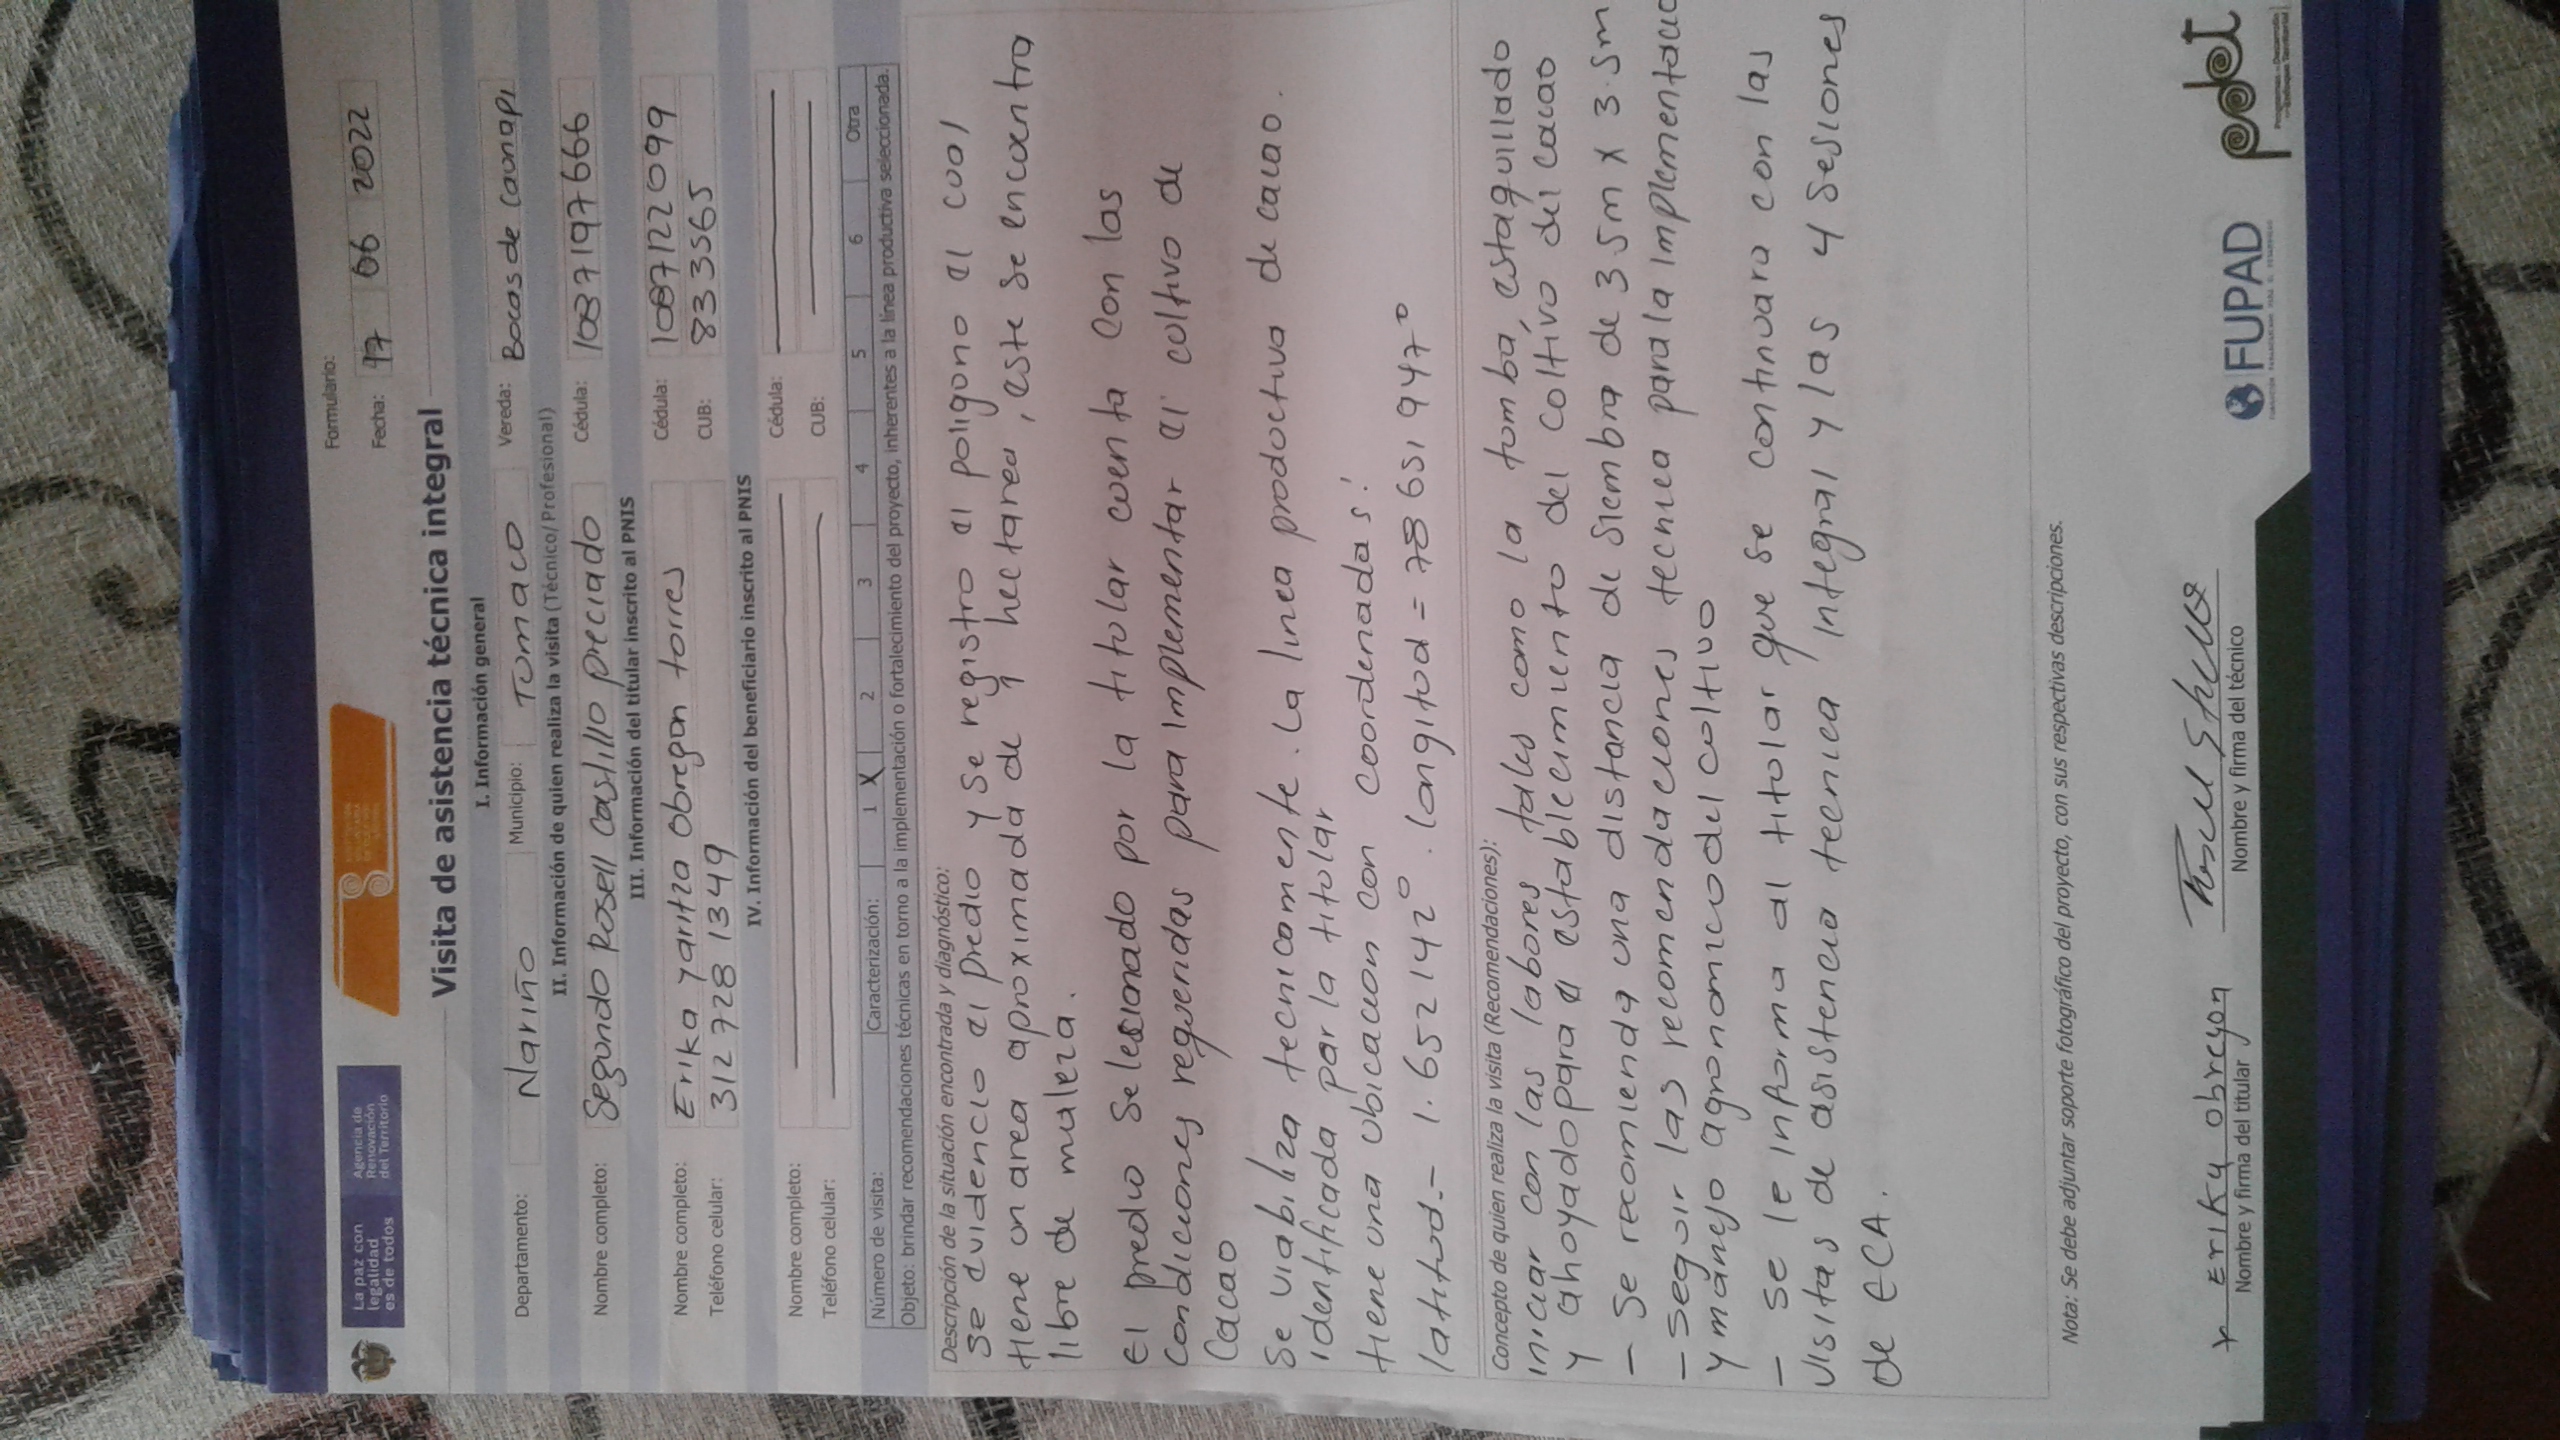 La paz con
legalidad
es de todos
Agencia de
Renovación
del Territorio
Formulario:
Fecha: 17 06 2022
Visita de asistencia técnica integral
I. Información general
Departamento: Nariño Municipio: Tumaco Vereda: Bocas de Caunapi
II. Información de quien realiza la visita (Técnico/Profesional)
Nombre completo: Segundo Rosell Castillo preciado Cédula: 1087197666
III. Información del titular inscrito al PNIS
Nombre completo: Erika yaritza Obregon torres Cédula: 1087122099
Teléfono celular: 312 728 1349 CUB: 833565
IV. Información del beneficiario inscrito al PNIS
Nombre completo: Cédula:
Teléfono celular: CUB:
Número de visita: Caracterización: 1 X 2 3 4 5 6 Otra
Objeto: brindar recomendaciones técnicas en torno a la implementación o fortalecimiento del proyecto, inherentes a la línea productiva seleccionada.
Descripción de la situación encontrada y diagnóstico:
Se evidencio el predio y se registro el poligono el cual
tiene un area aproximada de 1 hectarea, este se encuentra
libre de maleza.
El predio selesionado por la titular cuenta con las
condiciones requeridas para implementar el cultivo de
Cacao
Se viabiliza tecnicamente. La linea productiva de cacao.
identificada por la titular
tiene una ubicacion con coordenadas:
latitud.- 1.652142° . longitud = 78 651947°
Concepto de quien realiza la visita (Recomendaciones):
iniciar con las labores tales como la tumba, estaquillado
y ahoyado para el establecimiento del cultivo del cacao
- Se recomienda una distancia de siembra de 3.5m x 3.5m
- Seguir las recomendaciones tecnica para la implementacio
y manejo agronomico del cultivo
- Se le informa al titular que se continuara con las
visitas de asistencia tecnica integral y las 4 sesiones
de ECA.
Nota: Se debe adjuntar soporte fotográfico del proyecto, con sus respectivas descripciones.
x Erika obregon
Nombre y firma del titular
Nombre y firma del técnico
FUPAD
pdet